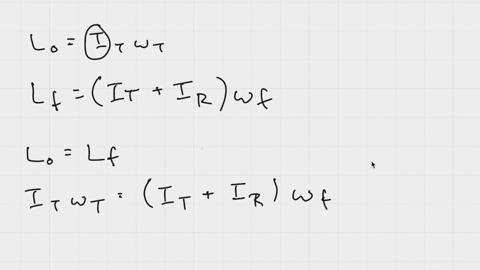 L₀ = I_T ω_T
L_f = (I_T + I_R) ω_f
L₀ = L_f
I_T ω_T = (I_T + I_R) ω_f